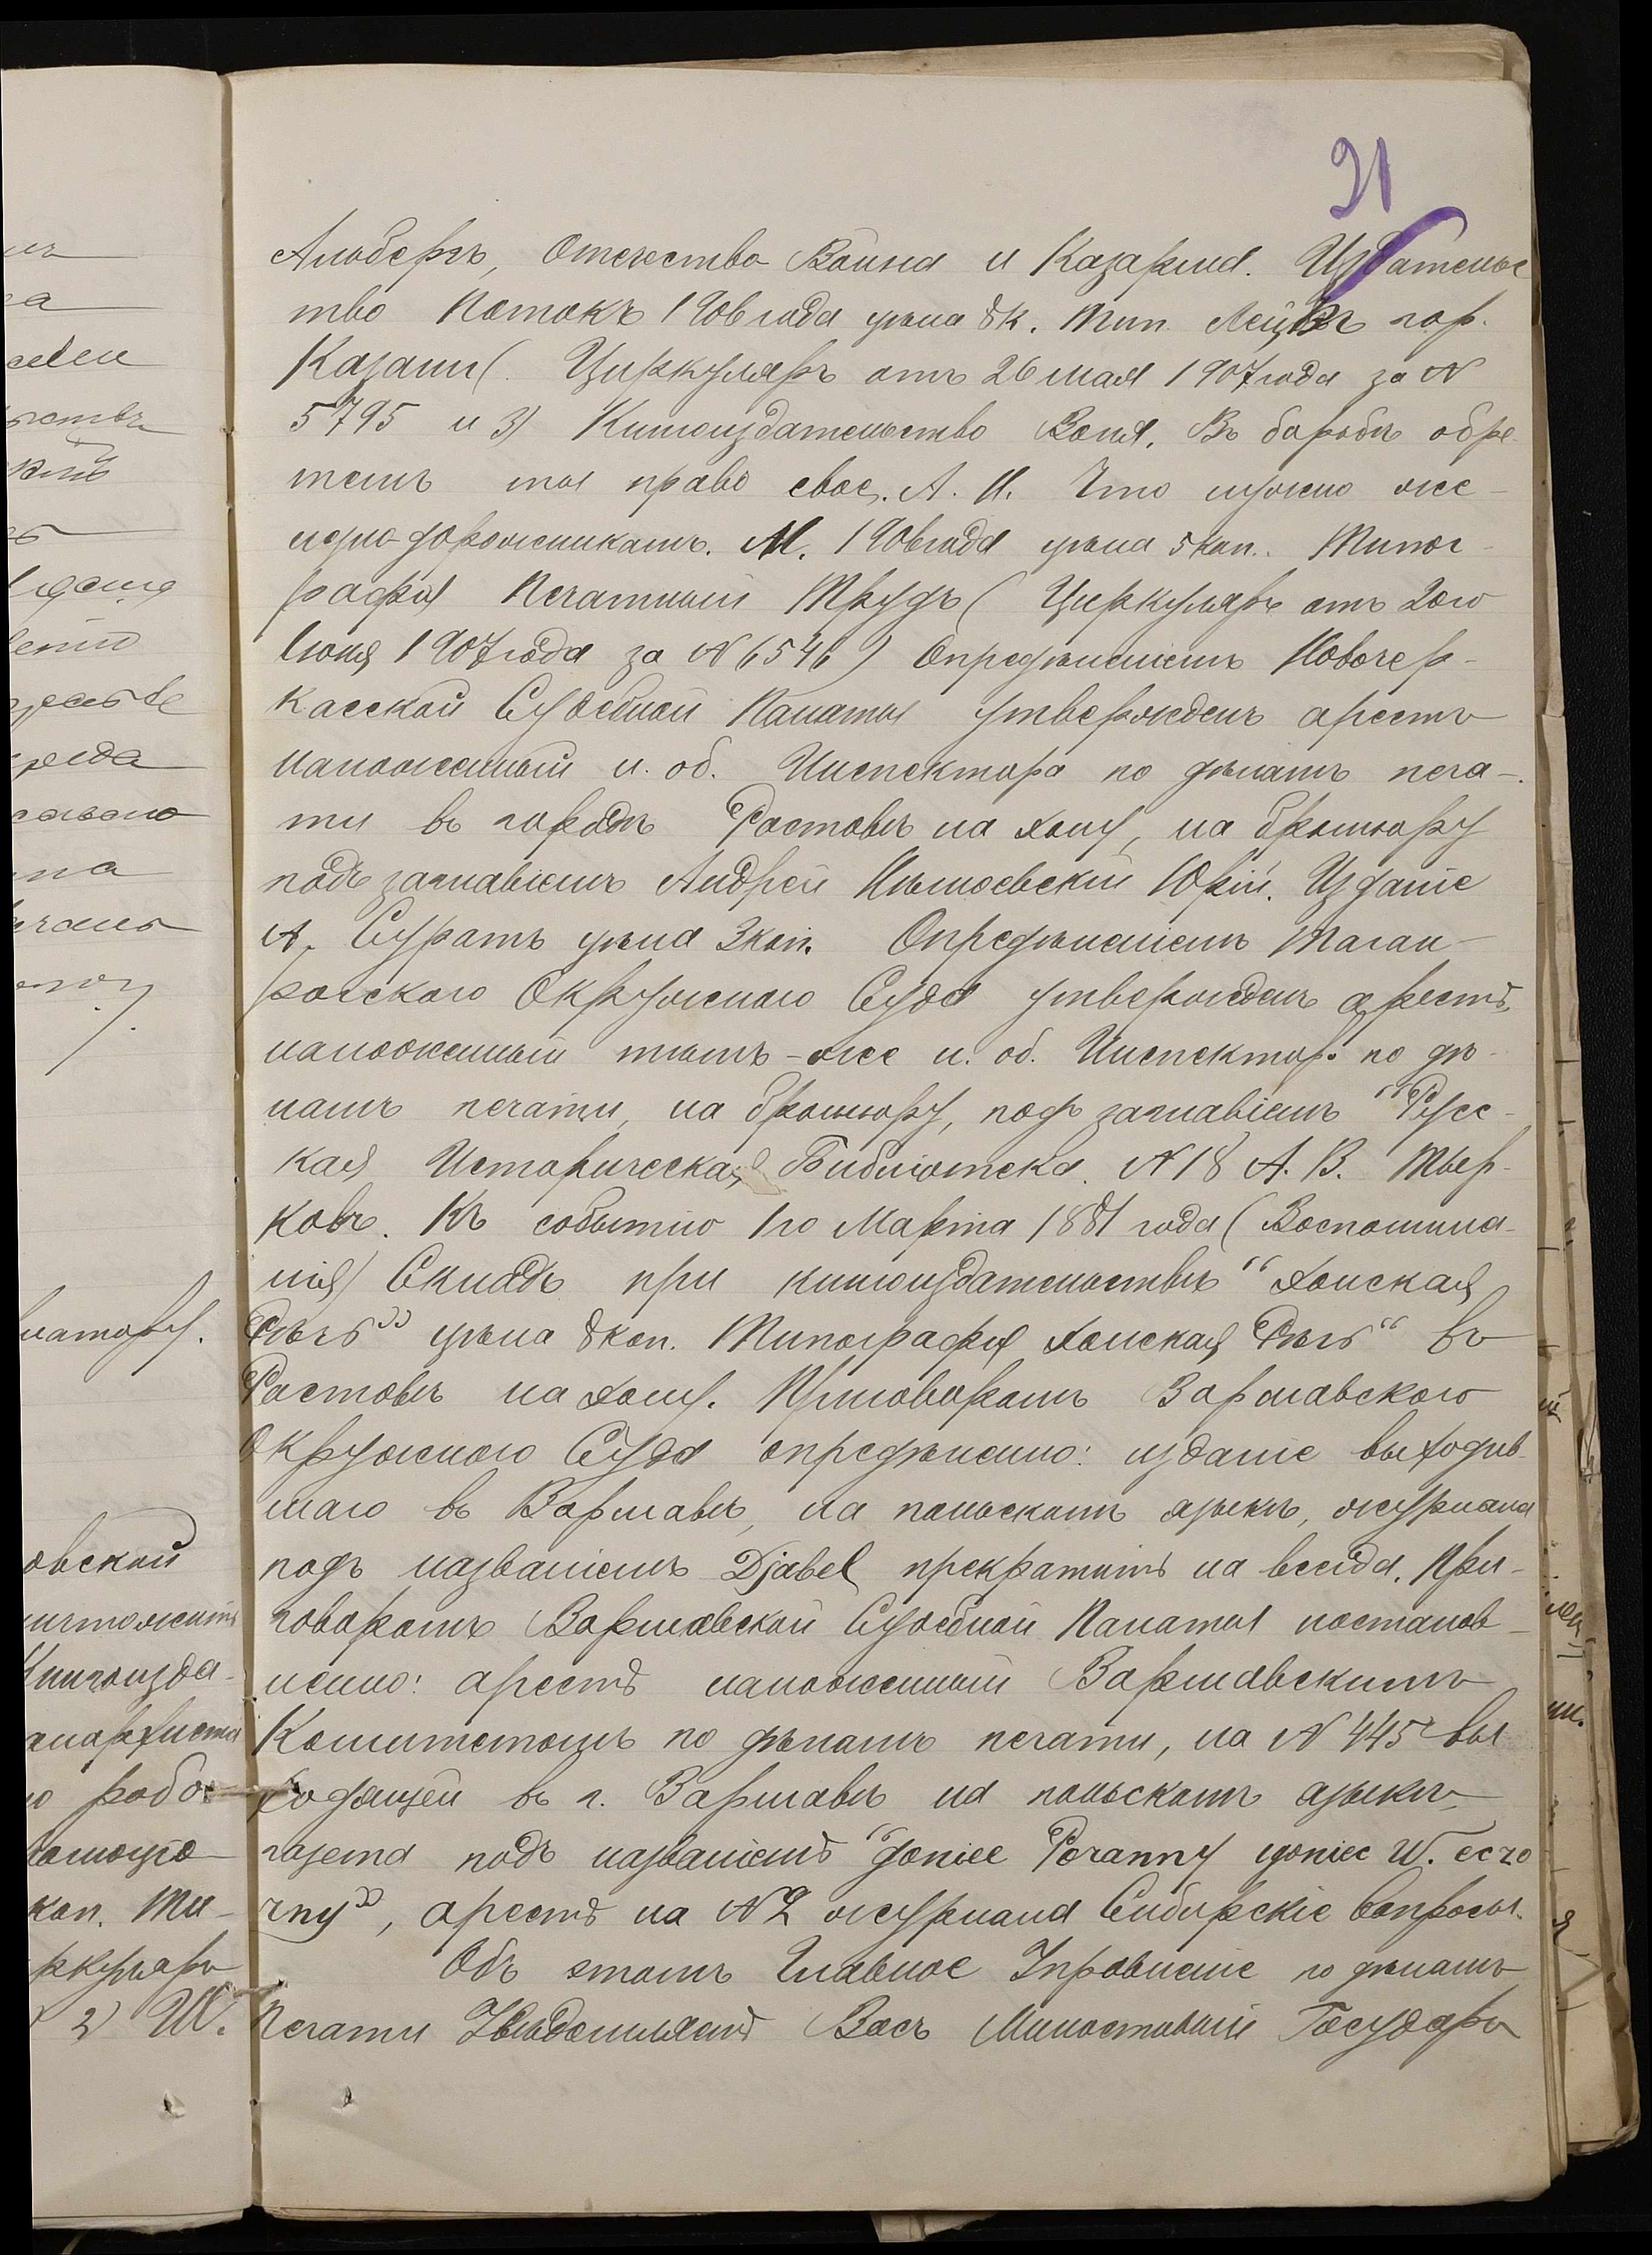 91
Альберъ, Отечество Война и Казарма. Издательс
тво Потокъ 1906 года цѣна 8 к. Тип. гор.
Казани(. Циркуляръ отъ 26 мая 1907 года за №
5795 и 3) Книгоиздательство Воля. Въ борьбѣ обре-
тешь ты право свое. А. И. Что нужно же-
лѣзно-дорожникамъ. М. 1906 года цѣна 5 коп.. Типог-
рафія Печатный Трудъ ( Циркуляръ отъ 20го
Іюня 1907 года за № 6546) Опредѣленіемъ Новочер-
касской Судебной Палаты утвержденъ арестъ
наложенный и. об. Инспектора по дѣламъ печа-
ти въ городѣ Ростовѣ на Дону, на брошюру
подъ заглавіемъ Андрей Нѣмоевскій Юрій. Изданіе
А. Суратъ цѣна 3 коп. Опредѣленіемъ Таган-
рогскаго Окружного Суда утвержденъ арестъ,
наложенный тѣмъ-же и. об. Инспектор. по дѣ-
ламъ печати, на брошюру, подъ заглавіемъ "Русс-
кая Историческая Библіотека. № 18 А. В. Тыр-
ковъ. Къ событію 1го Марта 1881 года ( Воспомина-
нія) Складъ при книгоиздательствѣ "Донская
Рѣчь" цѣна 8 коп. Типографія Донская Рѣчь" въ
Ростовѣ на Дону. Приговоромъ Варшавского
Окружного Суда опредѣлено: изданіе выходив-
шаго въ Варшавѣ, на польскомъ языкѣ, журнала
подъ названіемъ Djabel прекратить на всегда. При-
говоромъ Варшавской Судебной Палаты постанов-
лено: арестъ наложенный Варшавскимъ
Комитетомъ по дѣламъ печати, на № 445 вы
ходящей въ г. Варшавѣ на польскомъ языкѣ
газета подъ названіемъ "goniec Poranny goniec W. eczo
rny", арестъ на № 2 журнала Сибирскіе вопросы.
Объ этомъ Главное Управленіе по дѣламъ
Печати Увѣдомляетъ Васъ Милостивый Государь
латору.
овской
Книгоизда-
анархиста
коп. Ти-
2) Ш.